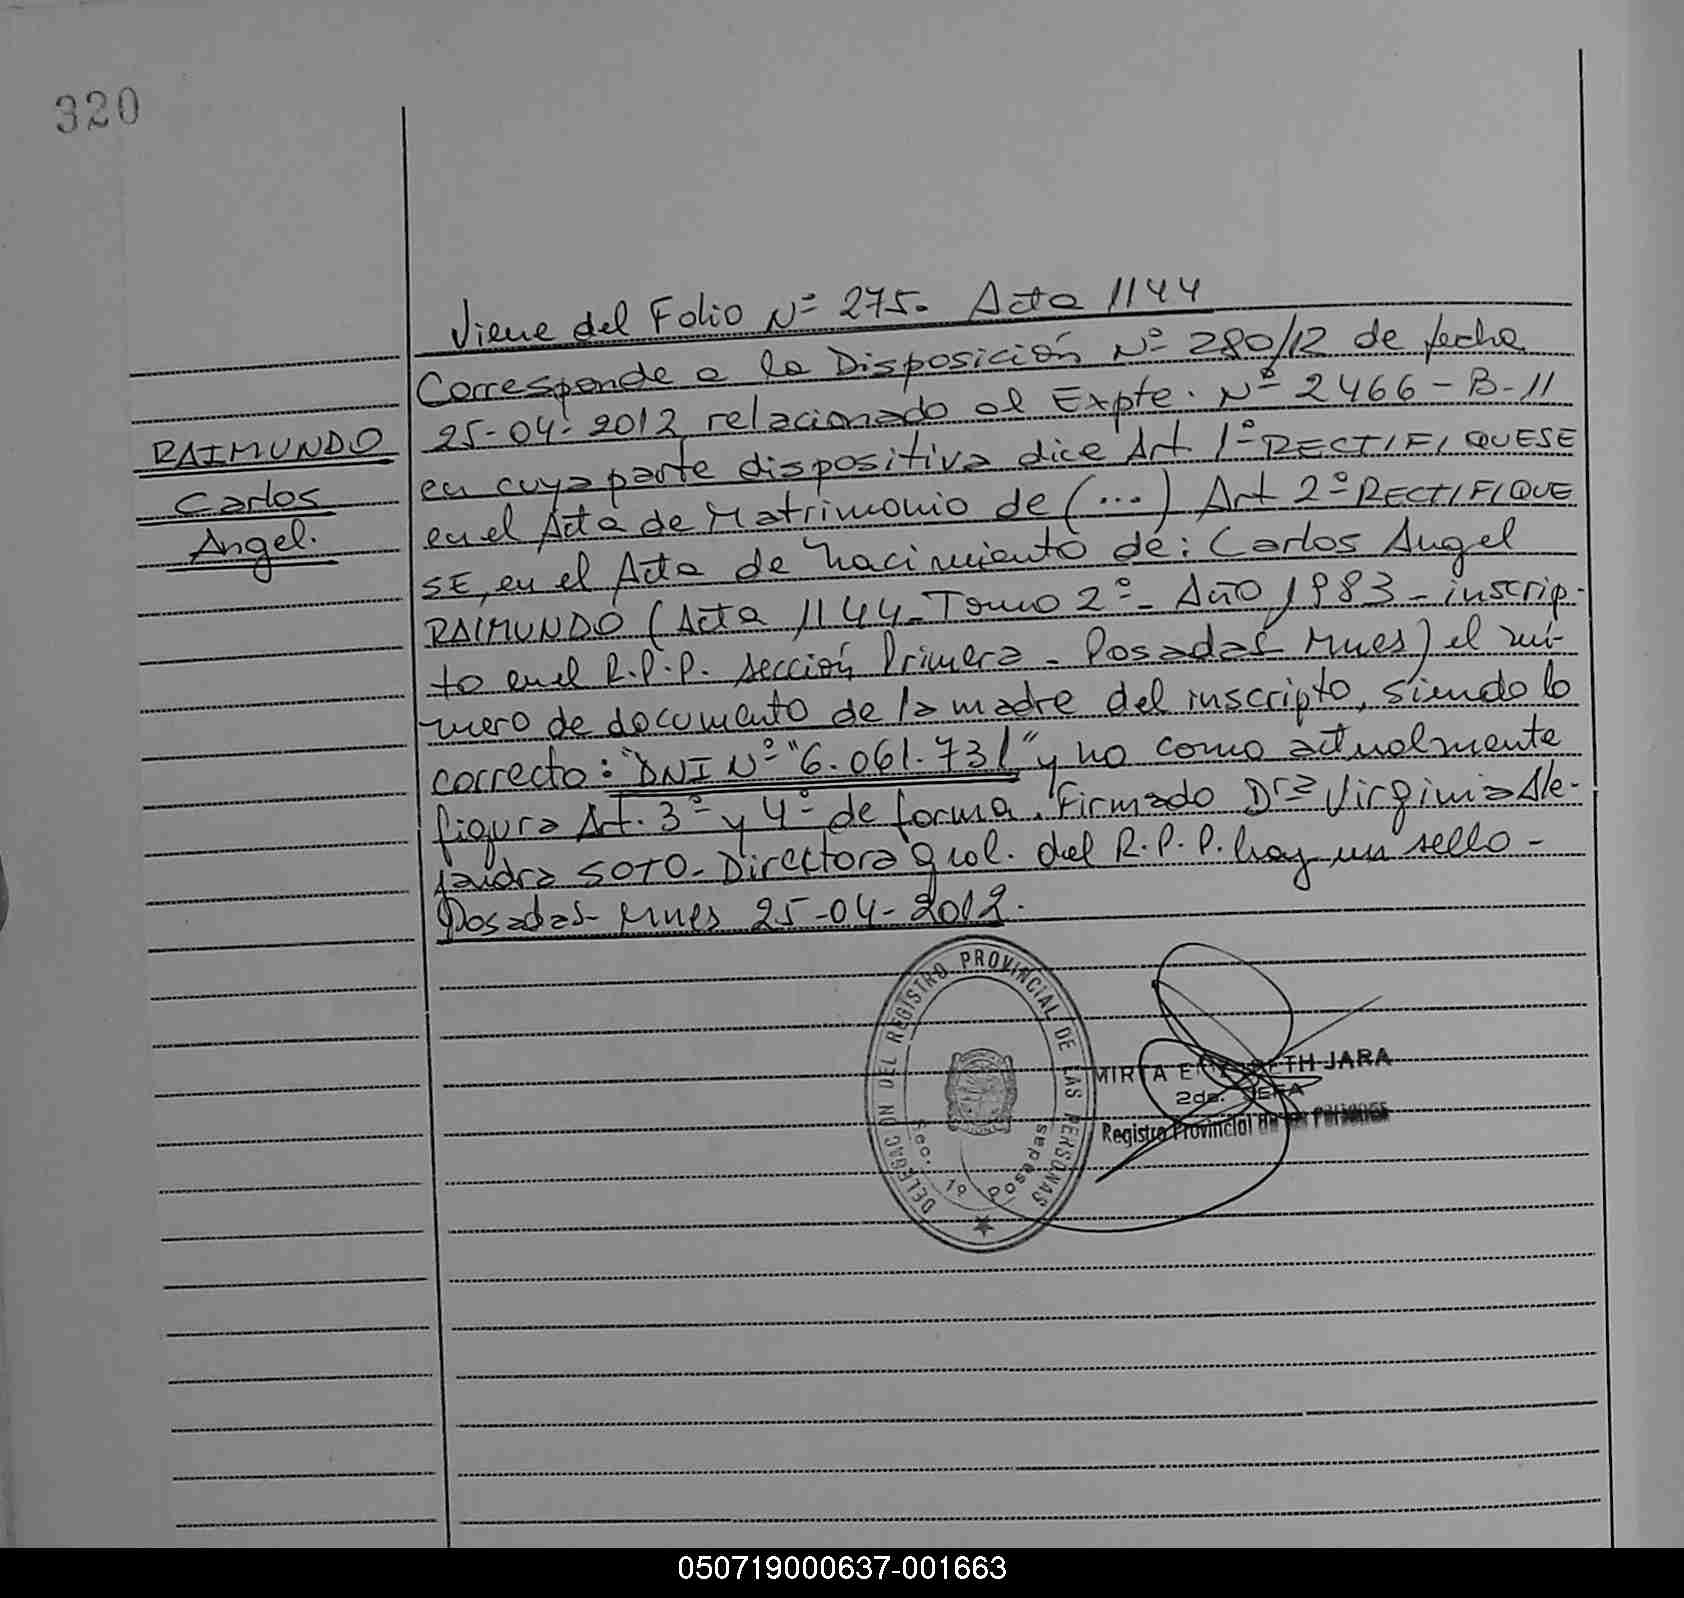 320
Viene del Folio Nº 275. Acta 1144
Corresponde a la Disposición Nº 280/12 de fecha
25-04-2012 relacionado al Expte. Nº 2466-B-11
RAIMUNDO
Carlos
Angel.
en cuya parte dispositiva dice Art 1º RECTIFIQUESE
en el Acta de Matrimonio de (...) Art 2º RECTIFIQUE
SE, en el Acta de nacimiento de: Carlos Angel
RAIMUNDO (Acta 1144-Tomo 2º- Año 1983 - inscrip-
to en el R.P.P. sección Primera - Posadas Mnes) el nú-
mero de documento de la madre del inscripto, siendo lo
correcto: "DNI Nº "6.061.731" y no como actualmente
figura Art. 3º y 4º de forma. Firmado Drª Virginia Ale-
jandra SOTO- Directora gral. del R.P.P. hay un sello -
Posadas- Mnes 25-04-2012.
DELEGACIÓN DEL REGISTRO PROVINCIAL DE LAS PERSONAS
Sec. 1ª Posadas
MIRTA JARA
2da. JEFA
Registro Provincial de las Personas
050719000637-001663